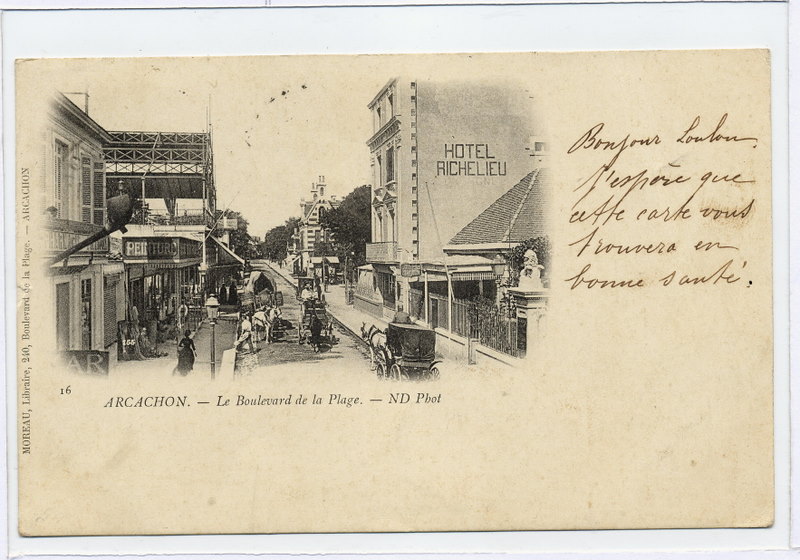 HOTEL
RICHELIEU
PEINTURE
155
AR
Bonjour Loulou.
J'espère que
cette carte vous
trouvera en
bonne santé.
16
ARCACHON. — Le Boulevard de la Plage. — ND Phot
MOREAU, Libraire, 240, Boulevard de la Plage. — ARCACHON